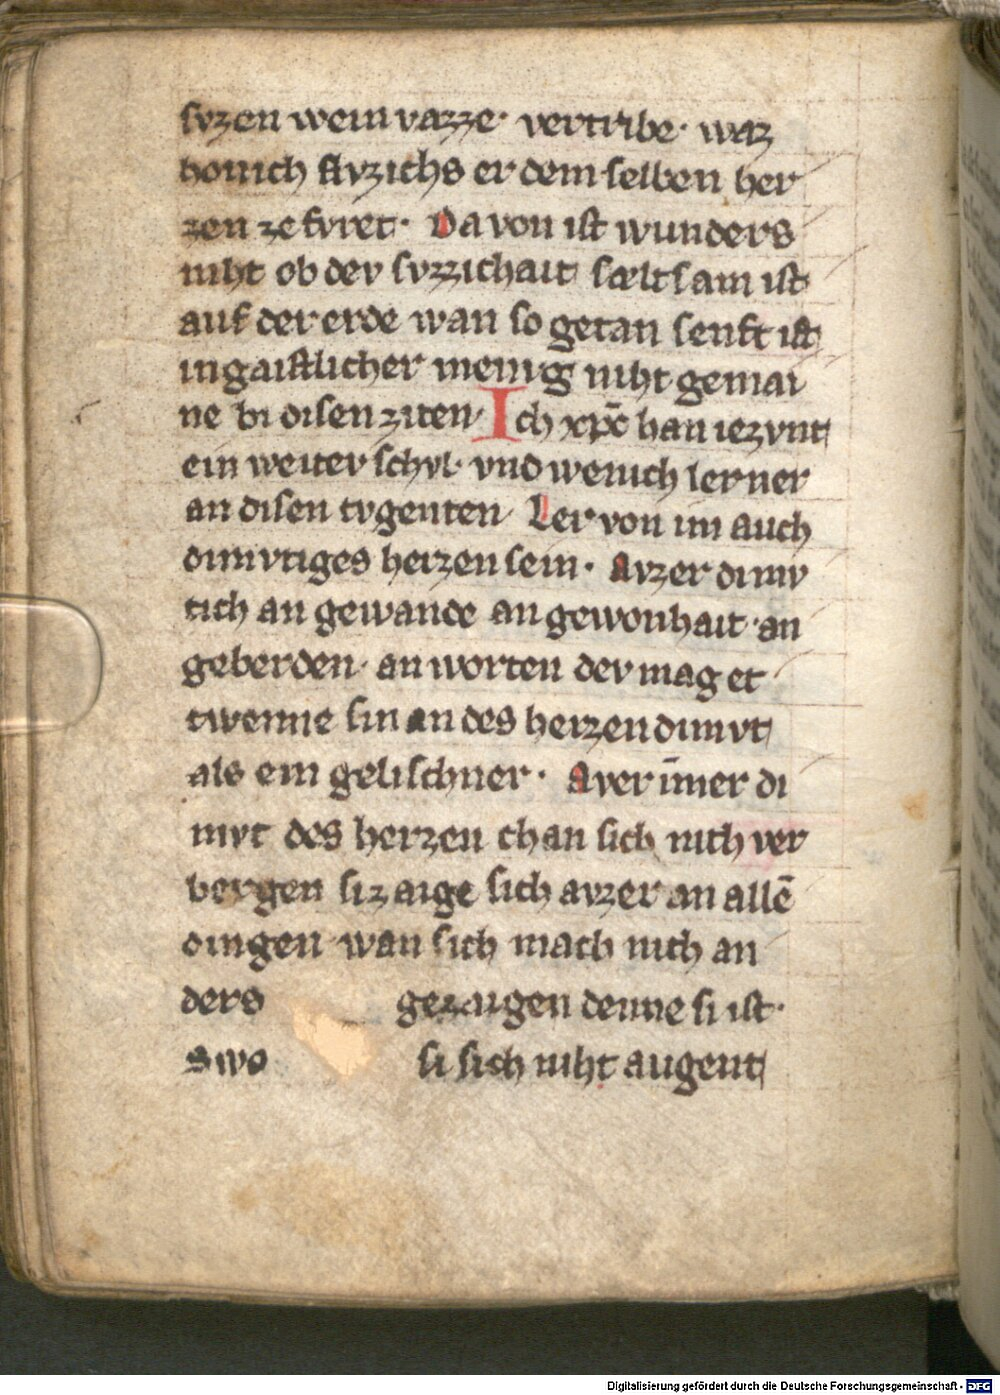 svzen wein vazze· vertribe· waz
honich flvzichs er dem selben her
zen ze fvret· Da von ist wunders
niht ob dev svzzichait sæltsam ist
auf der erde wan so getan senft ist
in gaistlicher menig niht gemai
ne bi disen ziten· Ich xp̄c han iezvnt
ein weitev schvl· vnd wenich lerner
an disen tvgenten· Ler von im auch
dimvtiges herzen sein· Avzer dimv
tich an gewande an gewonhait· an
geberden· an worten dev mag et
twenne sin an des herzen dimvt
als ein gelischner· Aver im̄er di
mvt des herzen chan sich nith ver
bergen si zaige sich avzer an allē
dingen wan sich mach nith an
ders gezaigen denne si ist·
swo si sich niht augent
Digitalisierung gefördert durch die Deutsche Forschungsgemeinschaft - DFG